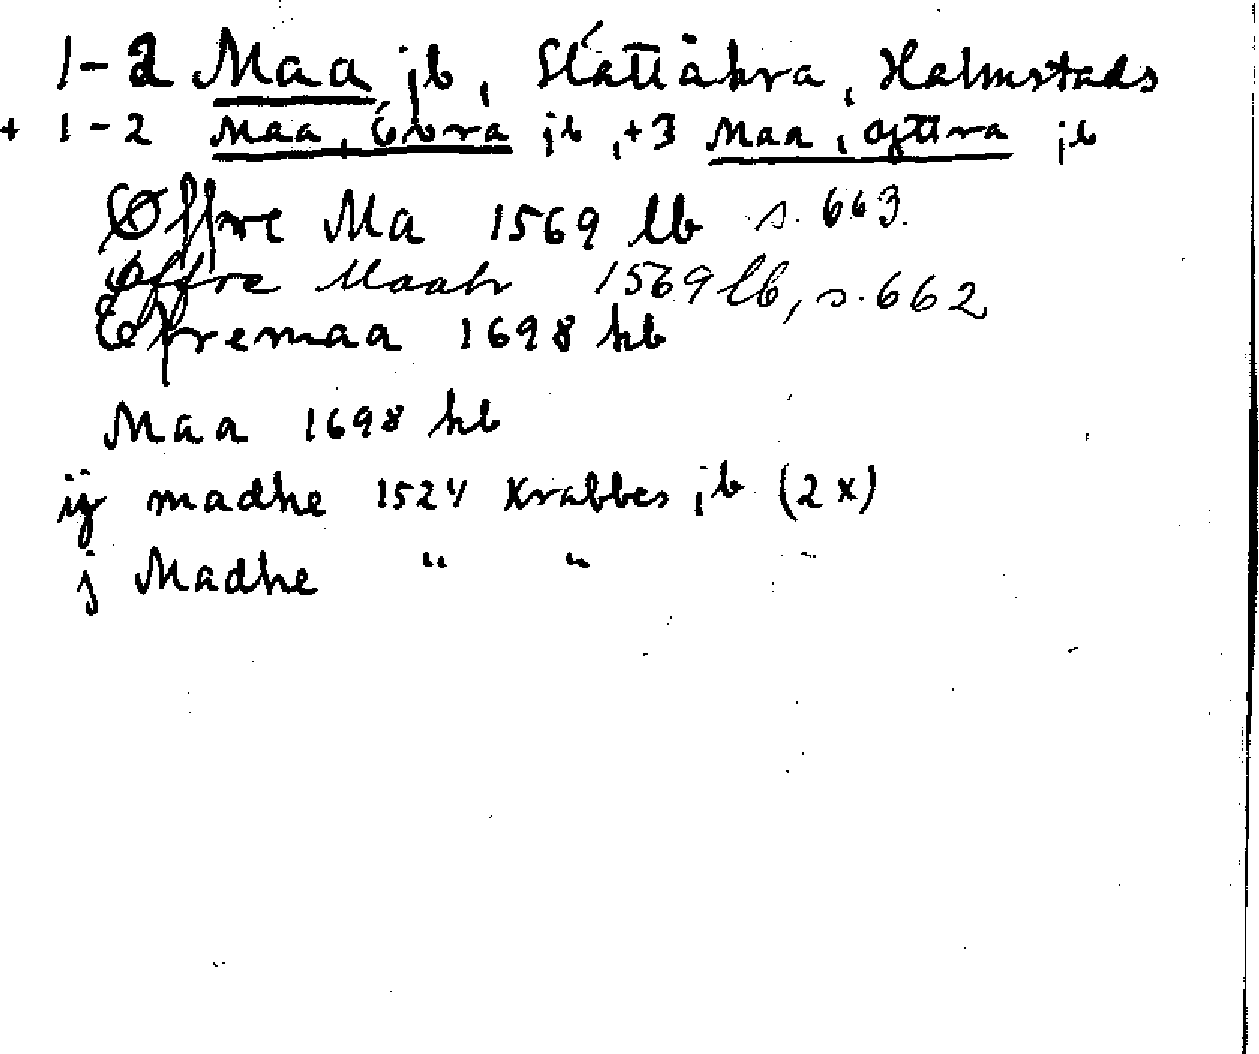 1-2 Maa jb, Slättåkra, Halmstads
+ 1-2 Maa, Övra jb, +3 Maa, Yttra jb
Øffre Ma 1569 lb s. 663.
Øffre Maah 1569 lb, s. 662
Öfremaa 1698 hb
Maa 1698 hb
ij madhe 1524 Krabbes jb (2x)
j Madhe " "